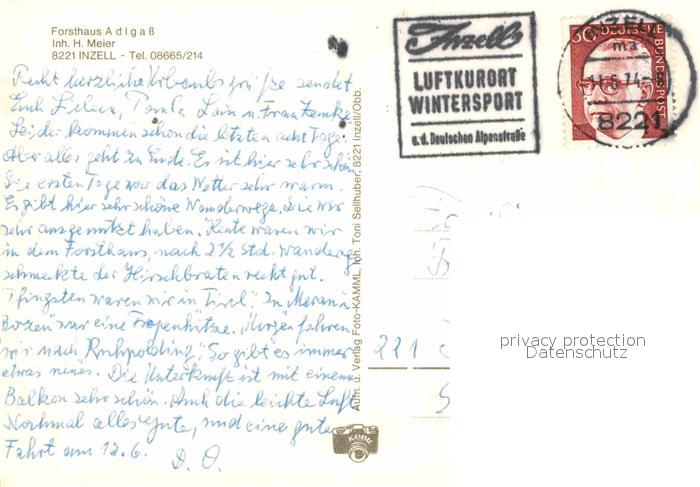 Forsthaus Adlgaß
Inh. H. Meier
8221 INZELL - Tel. 08665/214
Recht herzliche Urlaubsgrüße sendet
Euch Lieben, Tante
Leider kommen schon die letzten acht Tage.
Aber alles geht zu Ende. Es ist hier sehr schön
Die ersten Tage war das Wetter sehr warm.
Es gibt hier sehr schöne Wanderwege, die wir
sehr ausgenutzt haben. Heute waren wir
in dem Forsthaus, nach 2 1/2 Std. Wanderg.
schmeckte der Hirschbraten recht gut.
Pfingsten waren wir in Tirol. In Meran u.
Bozen war eine Tropenhitze. Morgen fahren
wir nach "Ruhpolding". So gibt es immer
etwas neues. Die Unterkunft ist mit einem
Balkon sehr schön. Auch die leichte Luft
Nochmal alles Gute, und eine gute
Fahrt am 12.6.
D. O.
Aufn. u. Verlag Foto-KAMML, Inh. Toni Sellhuber, 8221 Inzell/Obb.
KAMML
Inzell
LUFTKURORT
WINTERSPORT
a.d. Deutschen Alpenstraße
30 DEUTSCHE BUNDESPOST
INZELL
ma
11.6.74
8221
221
privacy protection
Datenschutz